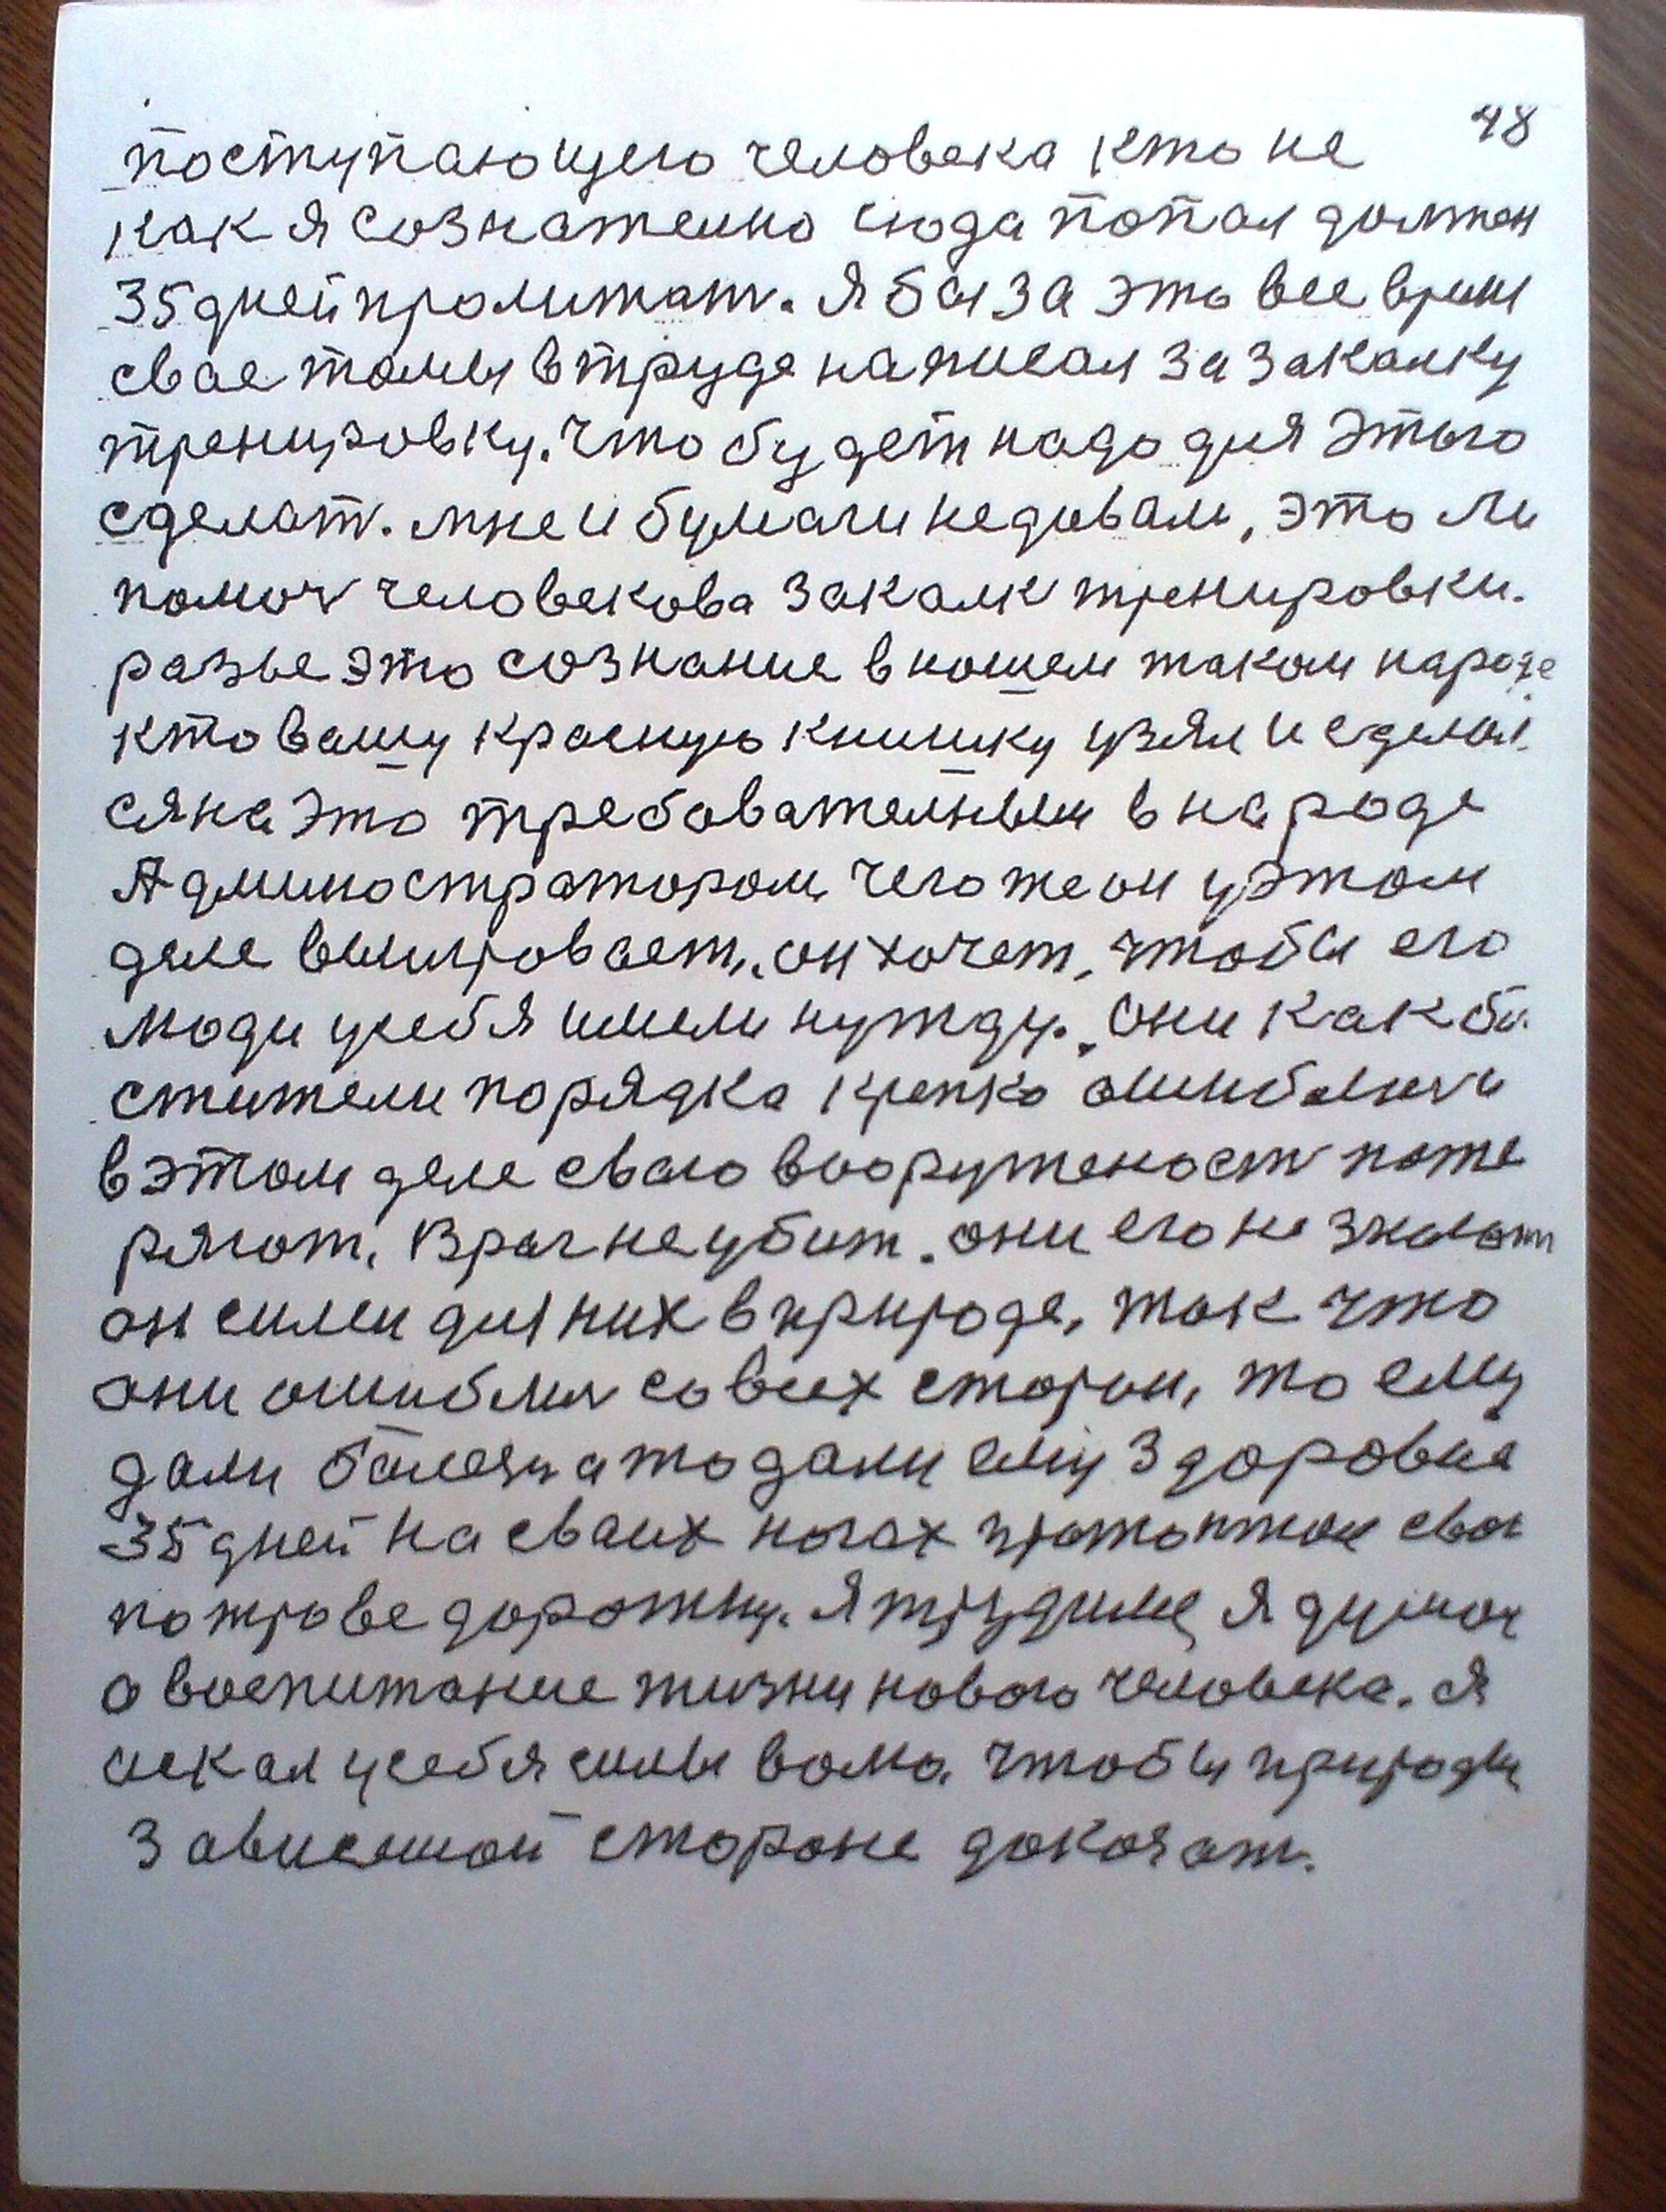 48
поступающего человека кто не
как я сознателно сюда попал должен
35 дней пролижат. Я бы за это все время
свае толлы в труде написал за закалку
тренировку. что будет надо для этого
сделат. мне и бумаги недавали, это ли
помоч человекова закалк тренировки.
разве это сознание в нашем таком народе
кто вашу красную книшку узял и сделал
ся на это требовательным в народе
Админостратором чего же он у этом
деле выигровает, он хочет, чтобы его
люди у себя имели нужду. Они как бы
стители порядка крепко ошиблис и
в этом деле сваю вооруженост поте
ряют. Враг не убит. они его не знают
он силен для них в природе, так что
они ошиблис со всех сторон, то ему
дали болезн а то дали ему здоровие
35 дней на сваих ногах протоптал сваю
по тробе дорожку. Я трудилс я думал
о воспитание жизни нового человека. Я
искал у себя силы воло. чтобы природы
зависимой стороне доказат.